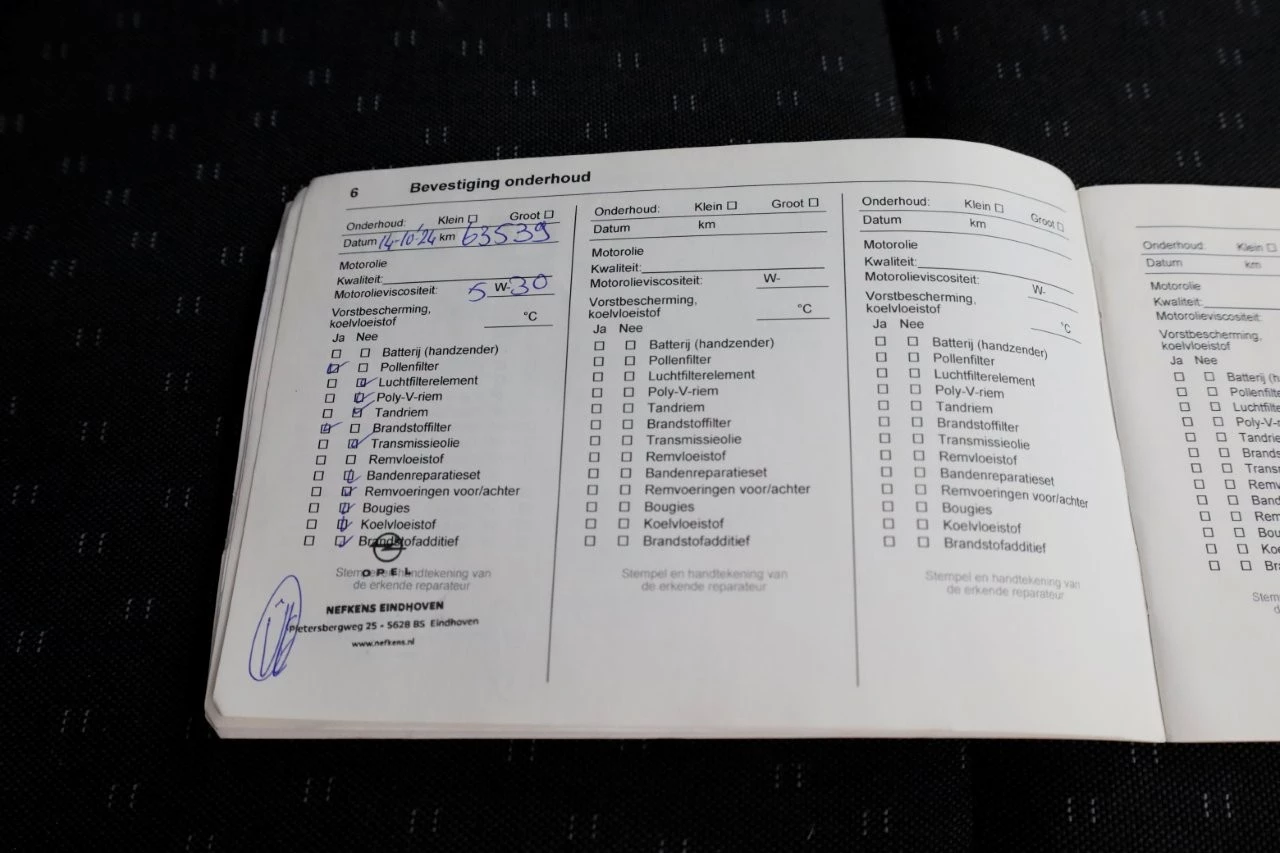 6 Bevestiging onderhoud
Onderhoud: Klein ☐ Groot ☐
Datum 14-10-'24 km 63539
Motorolie
Kwaliteit:
Motorolieviscositeit: 5 W-30
Vorstbescherming,
koelvloeistof °C
Ja Nee
☐ ☐ Batterij (handzender)
☑ ☐ Pollenfilter
☐ ☑ Luchtfilterelement
☐ ☑ Poly-V-riem
☐ ☑ Tandriem
☑ ☐ Brandstoffilter
☐ ☑ Transmissieolie
☐ ☐ Remvloeistof
☐ ☑ Bandenreparatieset
☐ ☑ Remvoeringen voor/achter
☐ ☑ Bougies
☐ ☑ Koelvloeistof
☐ ☑ Brandstofadditief
Stempel en handtekening van
de erkende reparateur
OPEL
NEFKENS EINDHOVEN
Pietersbergweg 25 - 5628 BS Eindhoven
www.nefkens.nl
Onderhoud: Klein ☐ Groot ☐
Datum km
Motorolie
Kwaliteit:
Motorolieviscositeit: W-
Vorstbescherming,
koelvloeistof °C
Ja Nee
☐ ☐ Batterij (handzender)
☐ ☐ Pollenfilter
☐ ☐ Luchtfilterelement
☐ ☐ Poly-V-riem
☐ ☐ Tandriem
☐ ☐ Brandstoffilter
☐ ☐ Transmissieolie
☐ ☐ Remvloeistof
☐ ☐ Bandenreparatieset
☐ ☐ Remvoeringen voor/achter
☐ ☐ Bougies
☐ ☐ Koelvloeistof
☐ ☐ Brandstofadditief
Stempel en handtekening van
de erkende reparateur
Onderhoud: Klein ☐ Groot ☐
Datum km
Motorolie
Kwaliteit:
Motorolieviscositeit: W-
Vorstbescherming,
koelvloeistof °C
Ja Nee
☐ ☐ Batterij (handzender)
☐ ☐ Pollenfilter
☐ ☐ Luchtfilterelement
☐ ☐ Poly-V-riem
☐ ☐ Tandriem
☐ ☐ Brandstoffilter
☐ ☐ Transmissieolie
☐ ☐ Remvloeistof
☐ ☐ Bandenreparatieset
☐ ☐ Remvoeringen voor/achter
☐ ☐ Bougies
☐ ☐ Koelvloeistof
☐ ☐ Brandstofadditief
Stempel en handtekening van
de erkende reparateur
Onderhoud: Klein ☐
Datum km
Motorolie
Kwaliteit:
Motorolieviscositeit:
Vorstbescherming,
koelvloeistof
Ja Nee
☐ ☐ Batterij (h
☐ ☐ Pollenfilte
☐ ☐ Luchtfilte
☐ ☐ Poly-V-
☐ ☐ Tandrie
☐ ☐ Brands
☐ ☐ Transm
☐ ☐ Remv
☐ ☐ Band
☐ ☐ Rem
☐ ☐ Bou
☐ ☐ Koe
☐ ☐ Bra
Stem
d